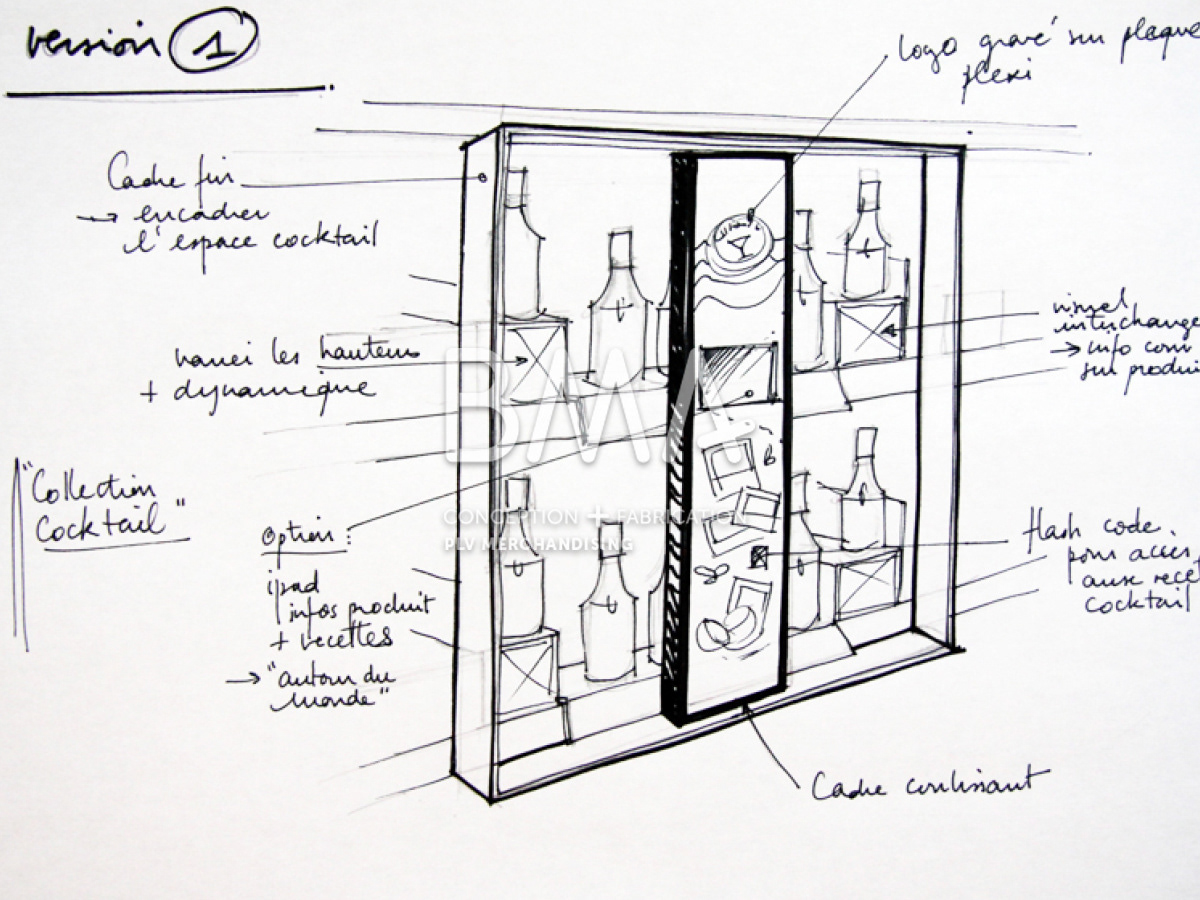 version 1
logo gravé sur plaque
plexi
Cadre fin
→ encadrer
l'espace cocktail
varier les hauteurs
+ dynamique
visuel
interchange
→ info com
sur produi
"Collection
Cocktail"
option :
ipad
infos produit
+ recettes
→ "autour du
monde"
flash code
pour accès
aux recet
cocktail
Cadre coulissant
B
BMA
CONCEPTION + FABRICATION
PLV MERCHANDISING